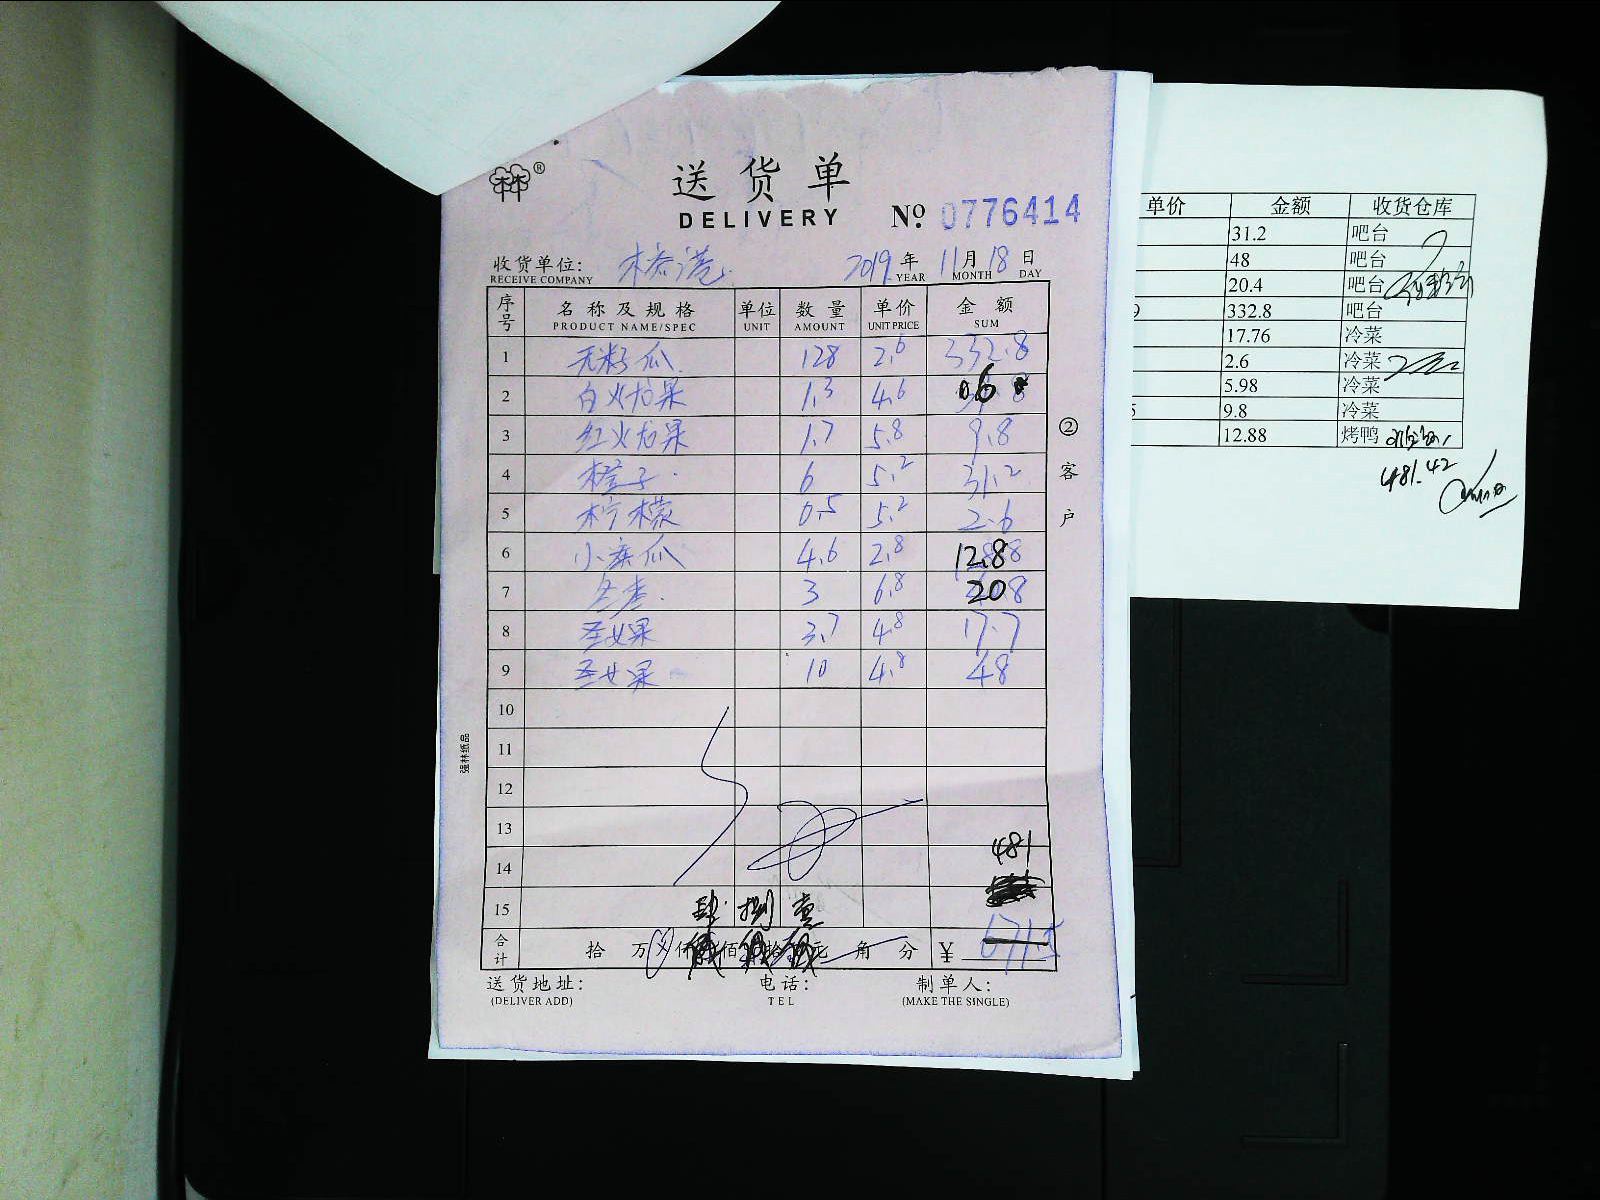 ®
送货单
DELIVERY
№ 0776414
收货单位:
RECEIVE COMPANY
2019 年 11 月 18 日
YEAR MONTH DAY
序号 名称及规格 单位 数量 单价 金额
PRODUCT NAME/SPEC UNIT AMOUNT UNIT PRICE SUM
1 无籽瓜 128 2.6 332.8
2 白火龙果 1.3 4.6 6
3 红火龙果 1.7 5.8 9.8
4 橙子 6 5.2 31.2
5 柠檬 0.5 5.2 2.6
6 小黄瓜 4.6 2.8 12.88
7 冬枣 3 6.8 20
8 圣女果 3.7 4.8 17.7
9 圣女果 10 4.8 48
10
11
12
13
14 481
15 肆 捌 壹
合计 拾 万 仟 佰 拾 元 角 分 ¥
送货地址: 电话: 制单人:
(DELIVER ADD) TEL (MAKE THE SINGLE)
②客户
强林纸品
单价 金额 收货仓库
31.2 吧台
48 吧台
20.4 吧台
9 332.8 吧台
17.76 冷菜
2.6 冷菜
5.98 冷菜
5 9.8 冷菜
12.88 烤鸭
481.42